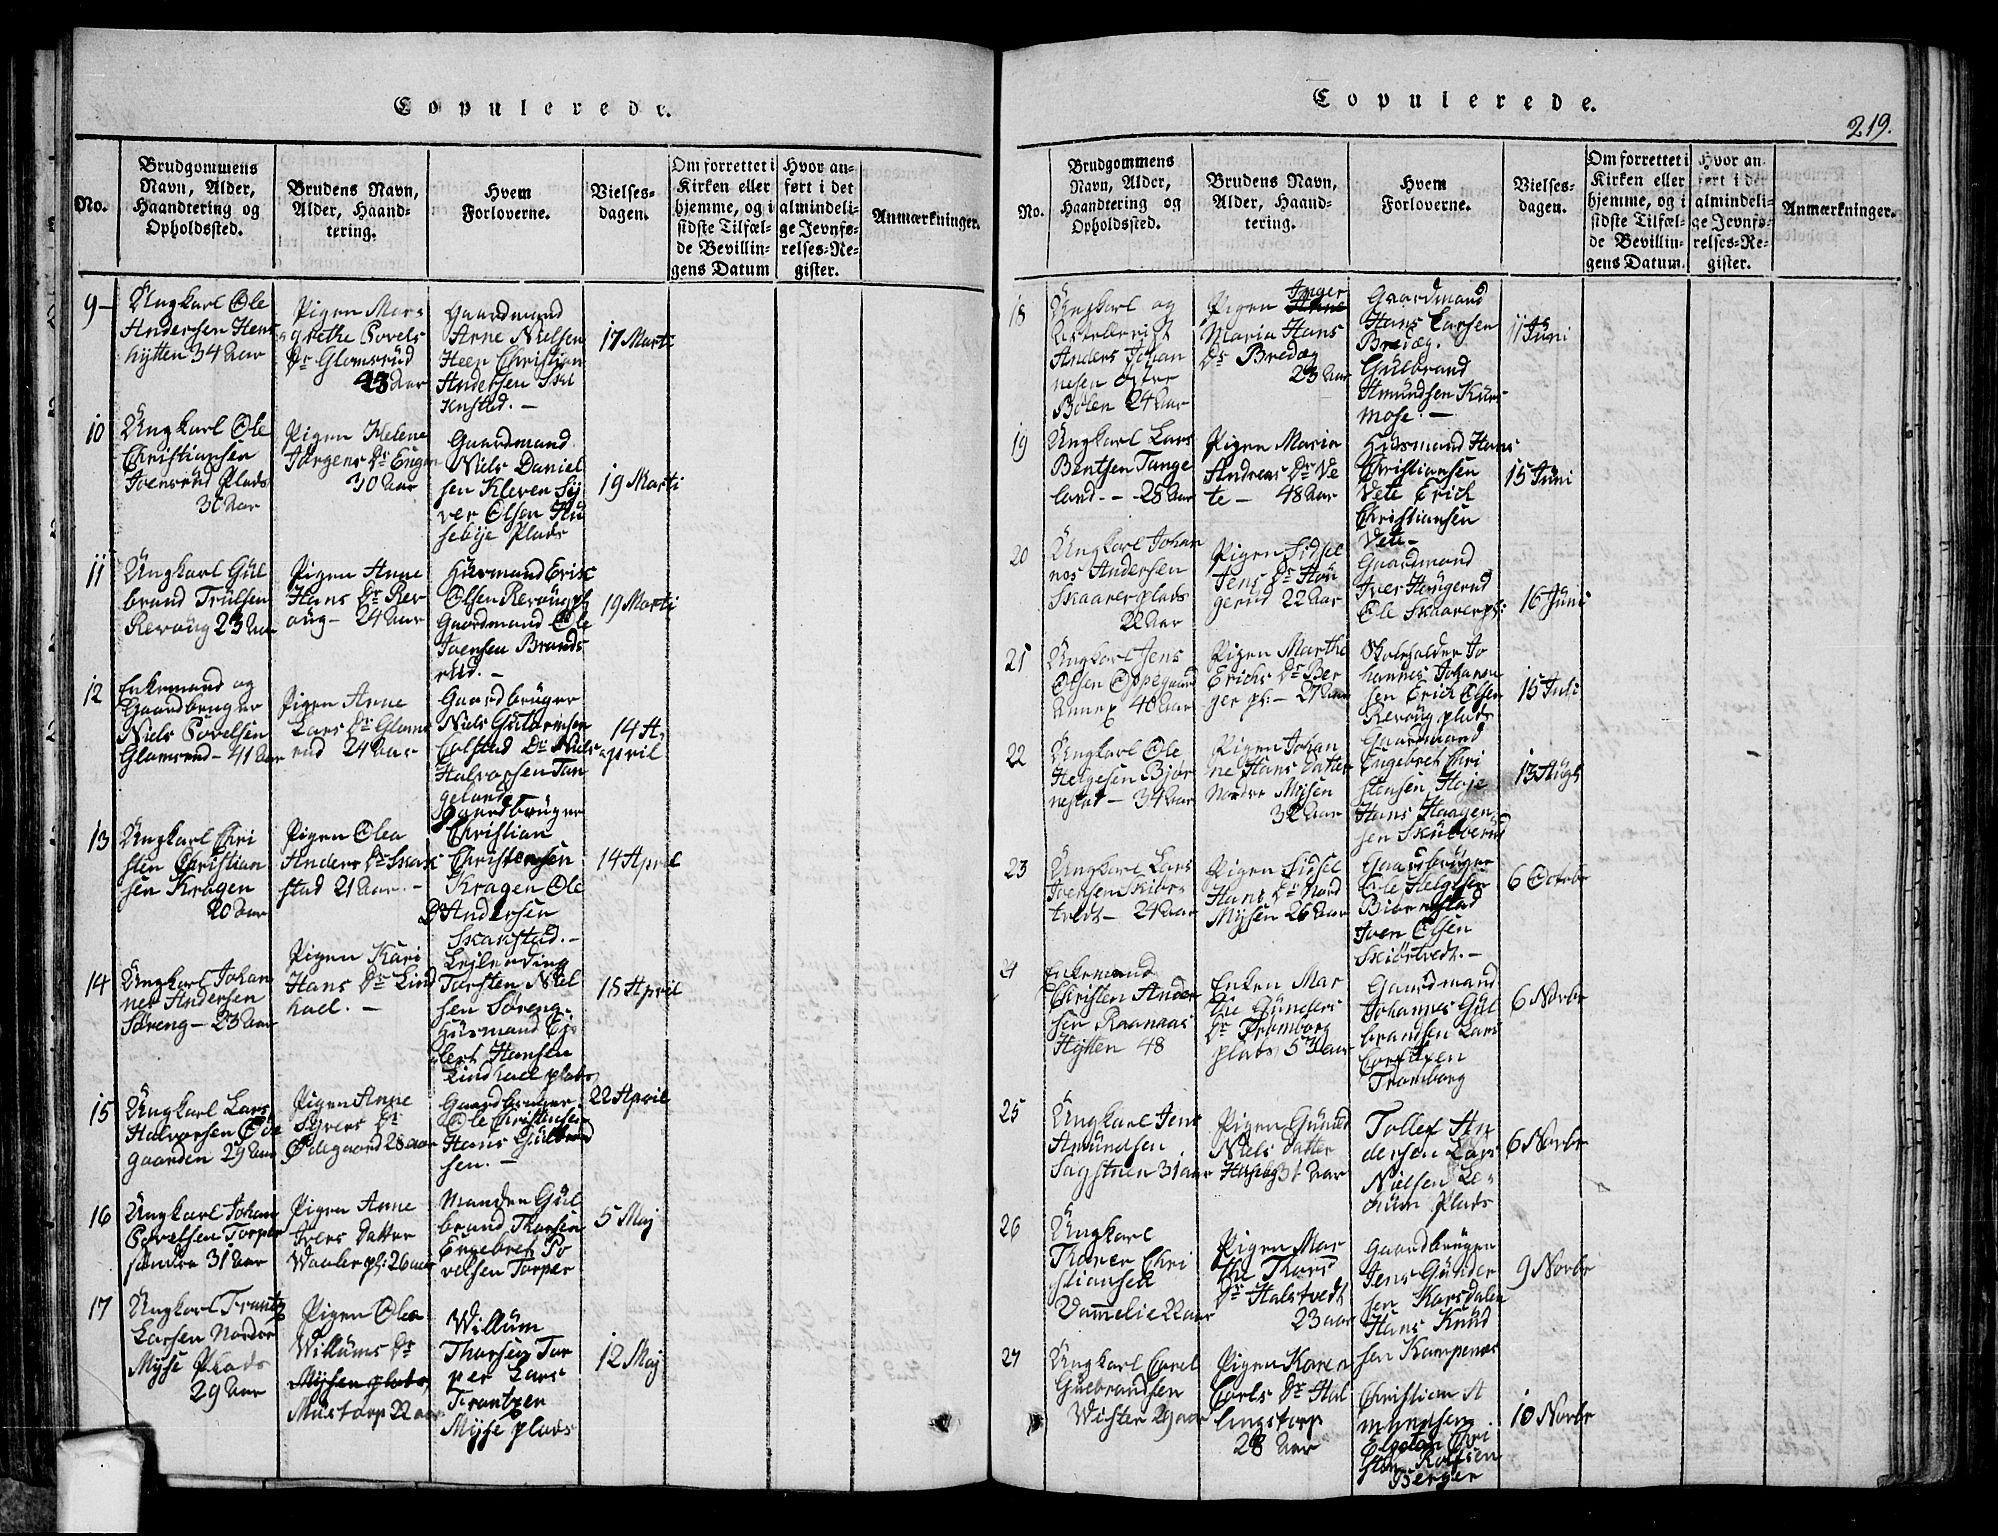 Copulerede.
No.
Brudgommens
Navn, Alder,
Haandtering og
Opholdssted.
Brudens Navn,
Alder, Haand-
tering.
Hvem
Forloverne.
Vielses-
dagen.
Om forrettet i
Kirken eller
hjemme, og i
sidste Tilfæl-
de Bevillin-
gens Datum
Hvor an-
ført i det
almindeli-
ge Jevnfø-
relses-Re-
gister.
Anmærkninger.
9
Ungkarl Ole
Andersen Hens
hytten 34 Aar
Pigen Mar-
grethe Povels
Dr Glomsrud
43 Aar
Gaardmand
Arne Nielsen
Heen Christian
Andersen
17 Marti
10
Ungkarl Ole
Christiansen
Joensrud Plads
Aar
Pigen Helene
Jørgens Dr Engen
30 Aar
Gaardmand
Niels Daniel
sen Kleven Sy
ver Olsen Hu
sebye Plads
19 Marti
11
Ungkarl Gul
brand Trulsen
Revoug 23 Aar
Pigen Anne
Hans Dr Rev
oug - 24 Aar
Husmand Erik
Olsen Revoug pl
Gaardmand Ole
Joensen Brands
rud. -
19 Marti
12
Enkemand og
Gaardbruger
Niels Povelsen
Glomsrud - 41 Aar
Pigen Anne
Lars Dr Gloms
rud 24 Aar
Gaardbruger
Niels Gutormsen
Colstad Dr Niels
Halvorsen Tan
geland
14 A-
pril
13
Ungkarl Chri
sten Christian
sen Kragen
20 Aar
Pigen Olea
Anders Dr Skak
stad 21 Aar. -
Gaardbruger
Christian
Christensen
Kragen Ole
Andersen
Skakstad. -
14 April
14
Ungkarl Johan
nes Andersen
Søreng - 23 Aar
Pigen Kari
Hans Dr Lind
hoel. -
Leilending
Torsten Niel
sen Søreng.
Husmand Ej
lert Hansen
Lindhoel plads
15 April
15
Ungkarl Lars
Halvorsen Øde
gaarden 29 Aar
Pigen Anne
Syvers Dr
Ødegaard 28 aar
Gaardbruger
Ole Christensen
Hans Gulbrand
sen. -
22 April
16
Ungkarl Johan
Povelsen Torper
søndre 31 Aar
Pigen Anne
Ivers Datter
Waaler pl: 26 aar
Manden Gul
brand Thorsen
Engebret Po
velsen Torper
5 Maj
17
Ungkarl Frantz
Larsen Nordre
Myse Plads
29 Aar
Pigen Olea
Willums Dr
Mysen plads
Mustorp 22 aar
Willum
Thorsen Tor
per Lars
Frantzen
Myse plads
12 Maj
Copulerede.
219.
No.
Brudgommens
Navn, Alder,
Haandtering og
Opholdssted.
Brudens Navn,
Alder, Haand-
tering.
Hvem
Forloverne.
Vielses-
dagen.
Om forrettet i
Kirken eller
hjemme, og i
sidste Tilfæl-
de Bevillin-
gens Datum.
Hvor an-
ført i det
almindeli-
ge Jevnfø-
relses-Re-
gister.
Anmærkninger.
18
Ungkarl og
Anders Johan
nesen Østre
Bølen 24 Aar
Pigen Inger
Maria Hans
Dr Bredæg
23 Aar
Gaardmand
Hans Larsen
Bredæg.
Gulbrand
Amundsen Kur-
mose. -
11 Juni
19
Ungkarl Lars
Bentsen Tange
land - - 28 Aar
Pigen Maria
Andreas Dr Ve
te - 48 Aar
Husmand Hans
Christiansen
Vete Erich
Christiansen
Vete -
15 Juni
20
Ungkarl Johan
nes Andersen
Skaarer plads
22 Aar
Pigen Sidsel
Jens Dr Hou
gerud 22 Aar
Gaardmand
Iver Hougerud
Ole Skaarer pl:
16 Juni
21
Ungkarl Jens
Olsen Oppegaard
Annex 40 Aar
Pigen Marthe
Erichs Dr Ber
ger pl: - 27 Aar
Skoleholder Jo
hannes Johanne
sen Erich Olsen
Revoug plads
15 Juli
22
Ungkarl Ole
Helgesen Bjør
nestad - 34 Aar
Pigen Johan
ne Hans Datter
Nordre Mysen
32 Aar
Gaardmand
Engebret Chri
stensen Høje
Hans Haagen
sen Skubberud
13 Augs
23
Ungkarl Lars
Joensen Skiør-
tvedt - 24 Aar
Pigen Sidsel
Hans Dr Nord
Mysen 26 Aar
Gaardbruger
Ole Helgesen
Biørnestad
Joen Olsen
Skiørtvedt. -
6 Octobr
24
Enkemand
Christen Ander
sen Raanaas
Hytten 48
Enken Mar
the Gunders
Dr Tromborg
plads 53 aar
Gaardmand
Johannes Gul
brandsen Lars
Tromborg
6 Novbr
25
Ungkarl Jens
Amundsen
Sagstuen 31 aar
Pigen Gunild
Niels Datter
31 Aar
Tollef An
dersen Lars
Nielsen Le-
Plads
6 Novbr
26
Ungkarl
Thorer Chri
stiansen
Vammelie 22 aar
Pigen Mar
the Thors
Dr Halstvedt
23 aar
Gaardbrugen
Jens Gunder
sen Karsdalen
Hans Knud
sen Kampenæs
9 Novbr
27
Ungkarl Carel
Gulbrandsen
Wister 29 aar
Pigen Karen
Carls Dr Hal
lingstorp
28 Aar
Christian A
mundsen
Chri
sten Rolfsen
Berger
10 Novbr